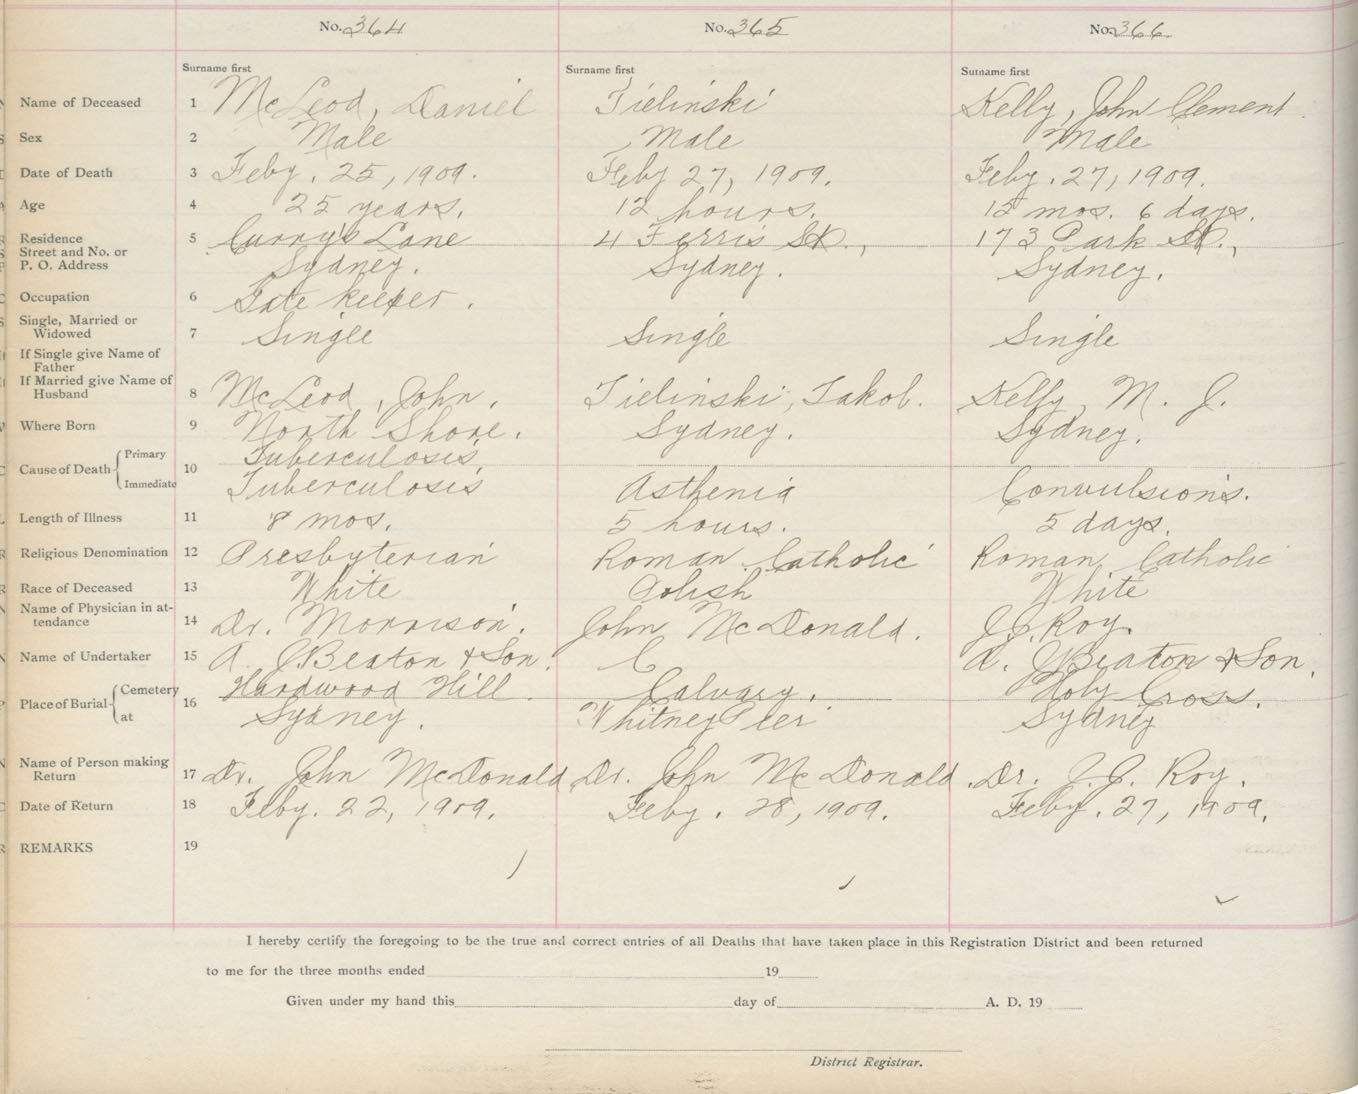 No. 364
No. 365
No. 366
Surname first
Surname first
Surname first
Name of Deceased 1 McLeod, Daniel Tielinski Kelly, John Clement
Sex 2 Male Male Male
Date of Death 3 Feby. 25, 1909. Feby 27, 1909. Feby. 27, 1909.
Age 4 25 years. 12 hours. 15 mos. 6 days.
Residence 5 Curry's Lane 4 Ferris St., 173 Park St.,
Street and No. or
P. O. Address Sydney. Sydney. Sydney.
Occupation 6 Gate keeper.
Single, Married or
Widowed 7 Single Single Single
If Single give Name of
Father
If Married give Name of
Husband 8 McLeod, John. Tielinski, Jakob. Kelly, M. J.
Where Born 9 North Shore. Sydney. Sydney.
Cause of Death Primary Tuberculosis
10
Immediate Tuberculosis Asthenia Convulsions.
Length of Illness 11 8 mos. 5 hours. 5 days.
Religious Denomination 12 Presbyterian Roman Catholic Roman Catholic
Race of Deceased 13 White Polish White
Name of Physician in at-
tendance 14 Dr. Morrison. John McDonald. J.J. Roy.
Name of Undertaker 15 A. J. Beaton & Son. A. J. Beaton & Son.
Place of Burial Cemetery Hardwood Hill Calvary. Holy Cross.
16
at Sydney. Whitney Pier Sydney
Name of Person making
Return 17 Dr. John McDonald Dr. John McDonald. Dr. J. J. Roy.
Date of Return 18 Feby. 22, 1909. Feby. 28, 1909. Feby. 27, 1909.
REMARKS 19
I hereby certify the foregoing to be the true and correct entries of all Deaths that have taken place in this Registration District and been returned
to me for the three months ended 19
Given under my hand this day of A. D. 19
District Registrar.